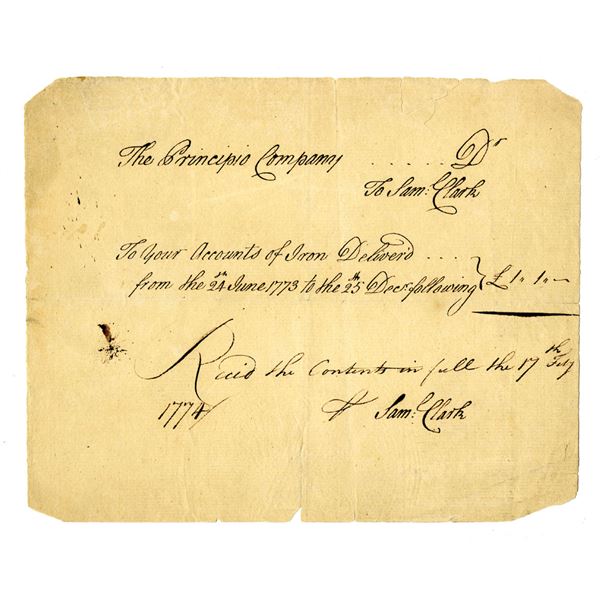 The Principio Company ..... Dr
To Sam. Clark
To Your Accounts of Iron Deliver'd ....
from the 24th June 1773 to the 25th Decr following } £1 " 1 " —
Rec'd the Contents in full the 17th Feby
1774
Saml. Clark